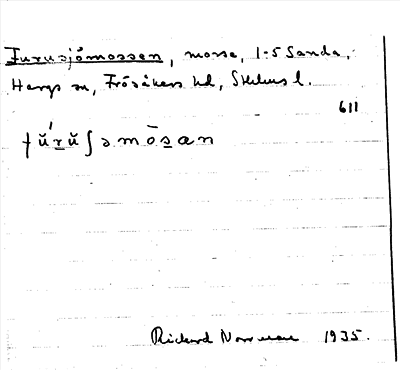 Furusjömossen, mosse, 1:5 Sanda,
Hargs sn, Frösåkers hd, Sthlms l.
611
fŭ́rŭʃəmōsan
Rickard Norrman 1935.